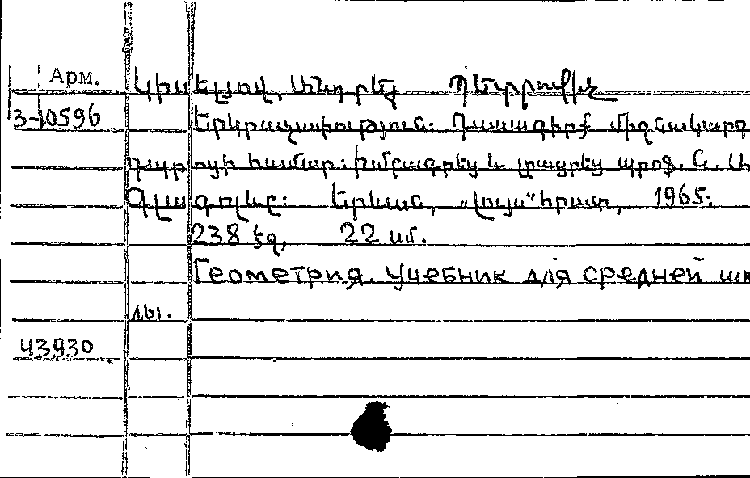 Арм.
Կիսելյով, Անդրեյ Պետրովիչ
3-10596
Երկրաչափություն: Դասագիրք միջնակարգ
դպրոցի համար: Խմբագրել և լրացրել պրոֆ. Ն. Ա.
Գլագոլևը: Երևան, „Լույս" հրատ, 1965.
238 էջ, 22 սմ.
Геометрия. Учебник для средней шко
лы.
43930